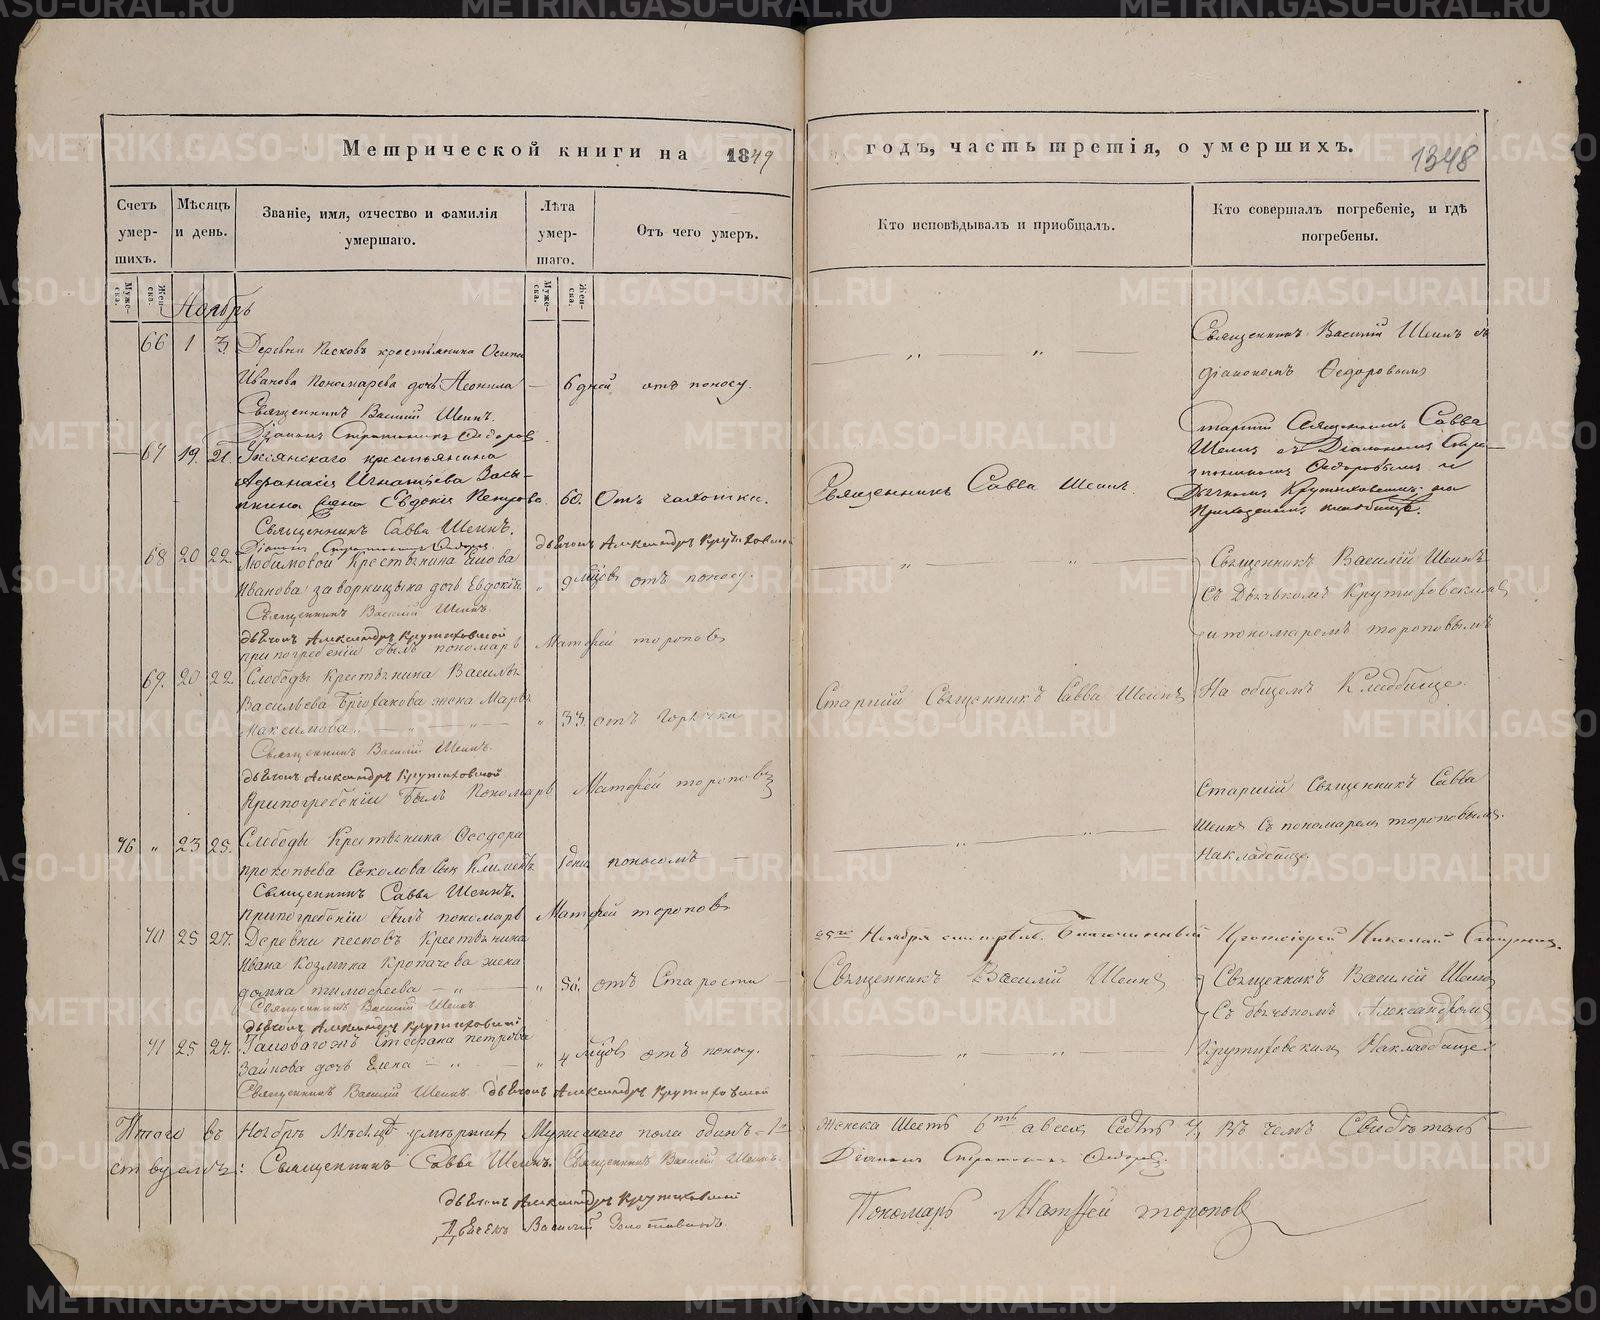 Метрической книги на 1849
годъ, часть третія, о умершихъ.
1348
Счетъ умер-шихъ.
Мѣсяцъ и день.
Званіе, имя, отчество и фамилія умершаго.
Лѣта умер-шаго.
Отъ чего умеръ.
Кто исповѣдывалъ и пріобщалъ.
Кто совершалъ погребеніе, и гдѣ погребены.
Муже-ска.
Жен-ска.
Муже-ска.
Жен-ска.
Ноябрь
66 1 3. Деревни Песковъ крестьянина Осипа
Иванова Пономарева дочь Неонила — 6 дней отъ поносу.
Священникъ Василій Шеинъ съ
діакономъ Ѳедоровымъ
Священникъ Василій Шеинъ.
Діаконъ Ѳедоровъ
— 67 19. 21. крестьянина
Аѳанасія Игнатьева
Евдокія Петрова 60. Отъ чахотки. Священникъ Савва Шеинъ.
Старшій Священникъ Савва
Шеинъ съ Діакономъ
Ѳедоровымъ и
Дьячкомъ Крутиховскимъ на
приходскомъ кладбищѣ.
Священникъ Савва Шеинъ.
Дьячокъ Александръ Крутиховской
68 20 22. Любимовой Крестьянина
Иванова дочь Евдокія. " 9 мѣсцовъ отъ поносу.
Священникъ Василій Шеинъ
Съ Дьячькомъ Крутиховскимъ
и пономаремъ Тороповымъ
Священникъ Василій Шеинъ.
дьячокъ Александръ Крутиховской
при погребеніи былъ пономарь Матфей Тороповъ
69. 20 22 Слободы Крестьянина Василья
Васильева жена Марья
Максимова " 33. отъ горячки
Старшій Священникъ Савва Шеинъ
На общемъ Кладбище.
Священникъ Василій Шеинъ.
дьячокъ Александръ Крутиховской
При погребеніи былъ Пономарь Матфей Тороповъ
46 " 23 25. Слободы Крестьянина Ѳеодора
Прокопьева Соколова сынъ Климентъ. 1 дня поносомъ —
Старшій Священникъ Савва
Шеинъ Съ пономаремъ Тороповымъ.
На кладбище.
Священникъ Савва Шеинъ.
при погребеніи былъ пономарь Матфей Тороповъ
70 25 27. Деревни песковъ Крестьянина
Ивана Козмина Кропачева жена
домна тимофеева " отъ Старости
25го Ноября Благочинный Протоіерей Николай
Священникъ Василій Шеинъ
Священникъ Василій Шеинъ
Съ дьячькомъ Александромъ
Крутиховскимъ На кладбище
Священникъ Василій Шеинъ
дьячокъ Александръ Крутиховскій
71 25 27. Стефана петрова
Зайкова дочь Елена " 4 мѣсцовъ отъ поносу.
Священникъ Василій Шеинъ. дьячокъ Александръ Крутиховской
Итого въ Ноябрѣ Мѣсяцѣ умершихъ Мужескаго пола одинъ — 1
женска Шесть 6ть а всехъ Седмь 7, Въ чемъ Свидѣтель-
ствуемъ: Священникъ Савва Шеинъ. Священникъ Василій Шеинъ.
Діаконъ Ѳедоровъ.
дьячокъ Александръ Крутиховской
Дьячекъ Василій
Пономарь Матфей Тороповъ
METRIKI.GASO-URAL.RU